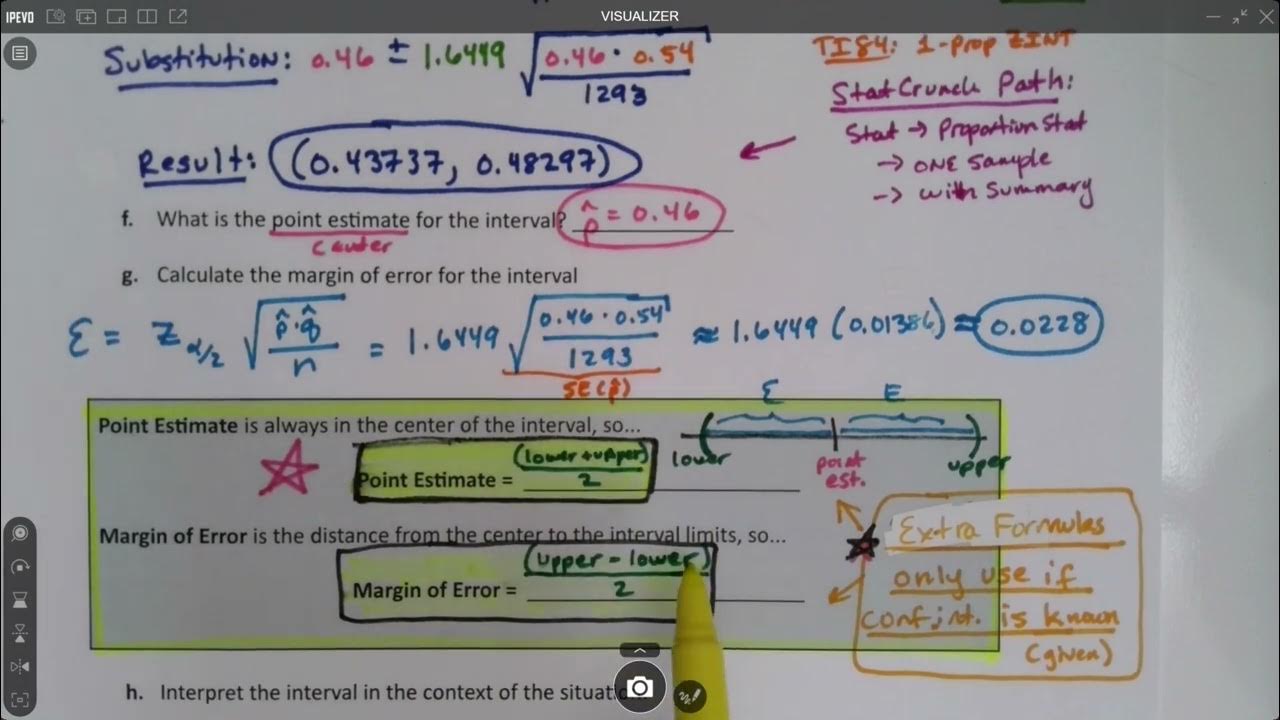 IPEVO
VISUALIZER
Substitution: 0.46 ± 1.6449 √(0.46 · 0.54 / 1293)
TI84: 1-Prop ZINT
StatCrunch Path:
Stat → Proportion Stat
→ ONE sample
→ with Summary
Result: (0.43737, 0.48297)
f. What is the point estimate for the interval? p̂ = 0.46
center
g. Calculate the margin of error for the interval
E = Z α/2 √(p̂·q̂ / n) = 1.6449 √(0.46 · 0.54 / 1293) ≈ 1.6449 (0.01386) ≈ 0.0228
SE(p̂)
E E
Point Estimate is always in the center of the interval, so...
lower point est. upper
Point Estimate = (lower + upper) / 2
Margin of Error is the distance from the center to the interval limits, so...
Margin of Error = (upper - lower) / 2
Extra Formulas
only use if
conf. int. is known
(given)
h. Interpret the interval in the context of the situati